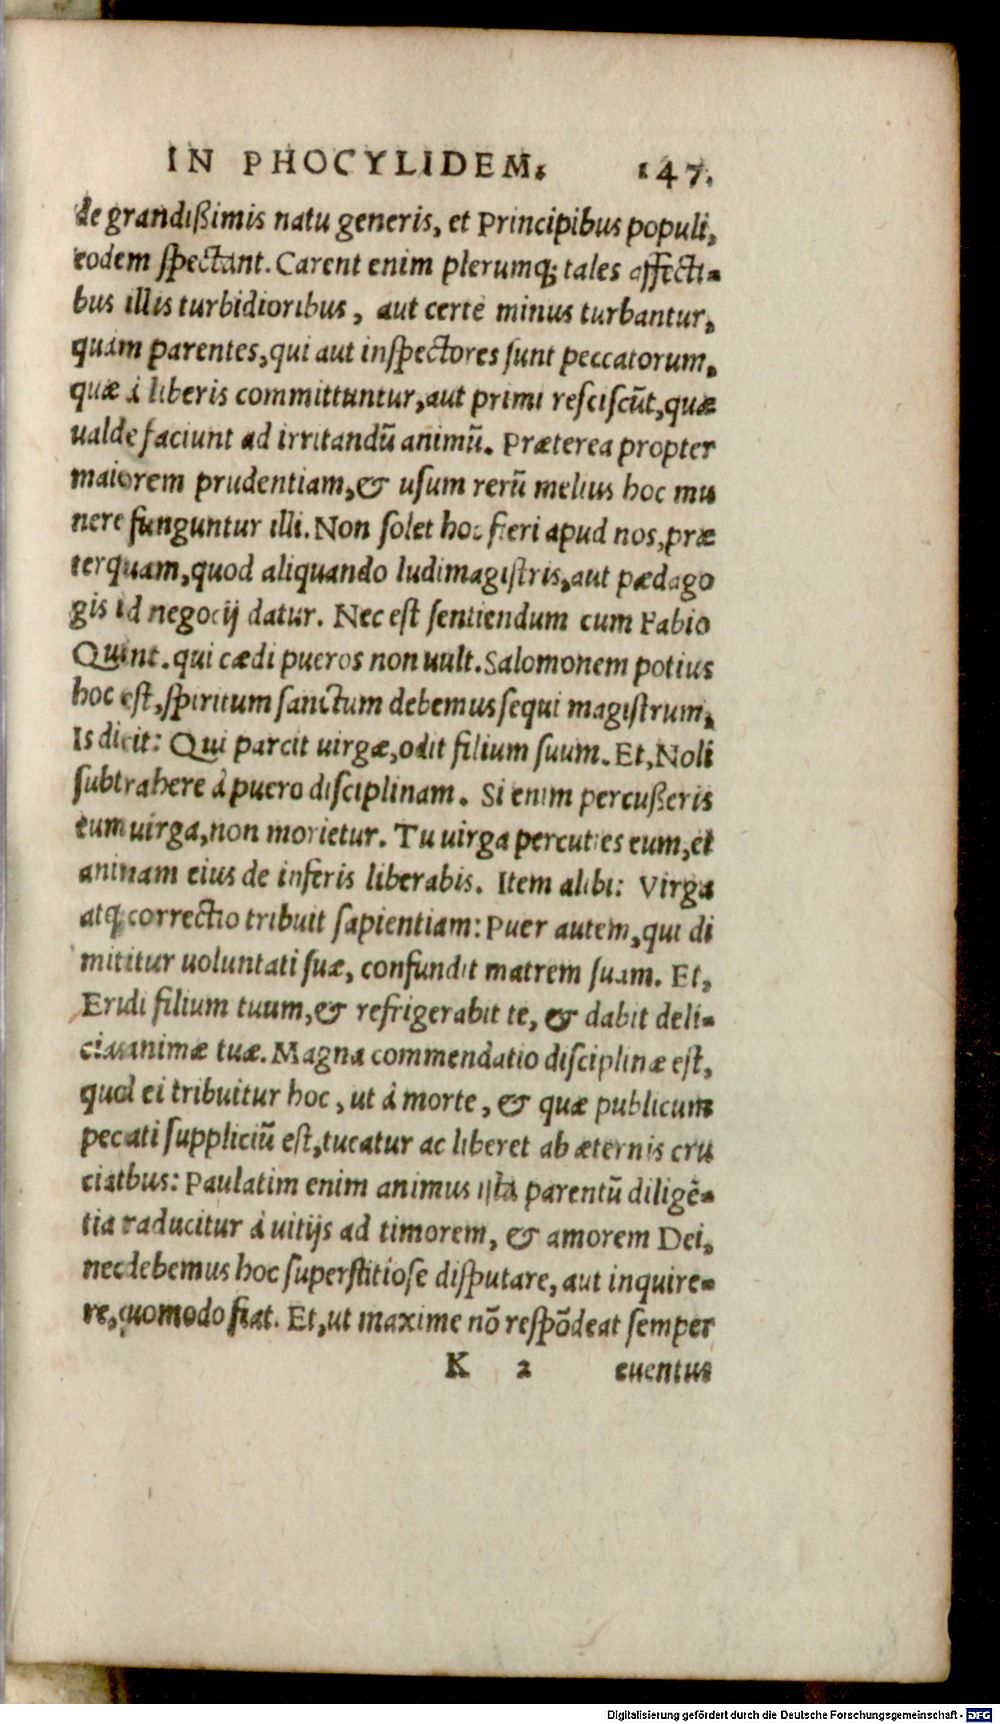 IN PHOCYLIDEM. 147.
de grandißimis natu generis, et Principibus populi,
eodem spectant. Carent enim plerumq; tales affecti-
bus illis turbidioribus, aut certè minus turbantur,
quàm parentes, qui aut inspectores sunt peccatorum,
quæ à liberis committuntur, aut primi resciscũt, quæ
ualde faciunt ad irritandũ animũ. Præterea propter
maiorem prudentiam, & usum rerũ melius hoc mu
nere funguntur illi. Non solet hoc fieri apud nos, præ
terquam, quod aliquando ludimagistris, aut pædago
gis id negocij datur. Nec est sentiendum cum Fabio
Quint. qui cædi pueros non uult. Salomonem potius
hoc est, spiritum sanctum debemus sequi magistrum.
Is dicit: Qui parcit uirgæ, odit filium suum. Et, Noli
subtrahere à puero disciplinam. Si enim percußeris
eum uirga, non morietur. Tu uirga percuties eum, et
animam eius de inferis liberabis. Item alibi: Virga
atq; correctio tribuit sapientiam: Puer autem, qui di
mittitur uoluntati suæ, confundit matrem suam. Et,
Erudi filium tuum, & refrigerabit te, & dabit deli-
cias animæ tuæ. Magna commendatio disciplinæ est,
quod ei tribuitur hoc, ut à morte, & quæ publicum
peccati suppliciũ est, tueatur ac liberet ab æternis cru
ciatibus: Paulatim enim animus ista parentũ diligẽ-
tia traducitur à uitijs ad timorem, & amorem Dei,
nec debemus hoc superstitiose disputare, aut inquire-
re, quomodo fiat. Et, ut maxime nõ respõdeat semper
K 2 euentus
Digitalisierung gefördert durch die Deutsche Forschungsgemeinschaft - DFG